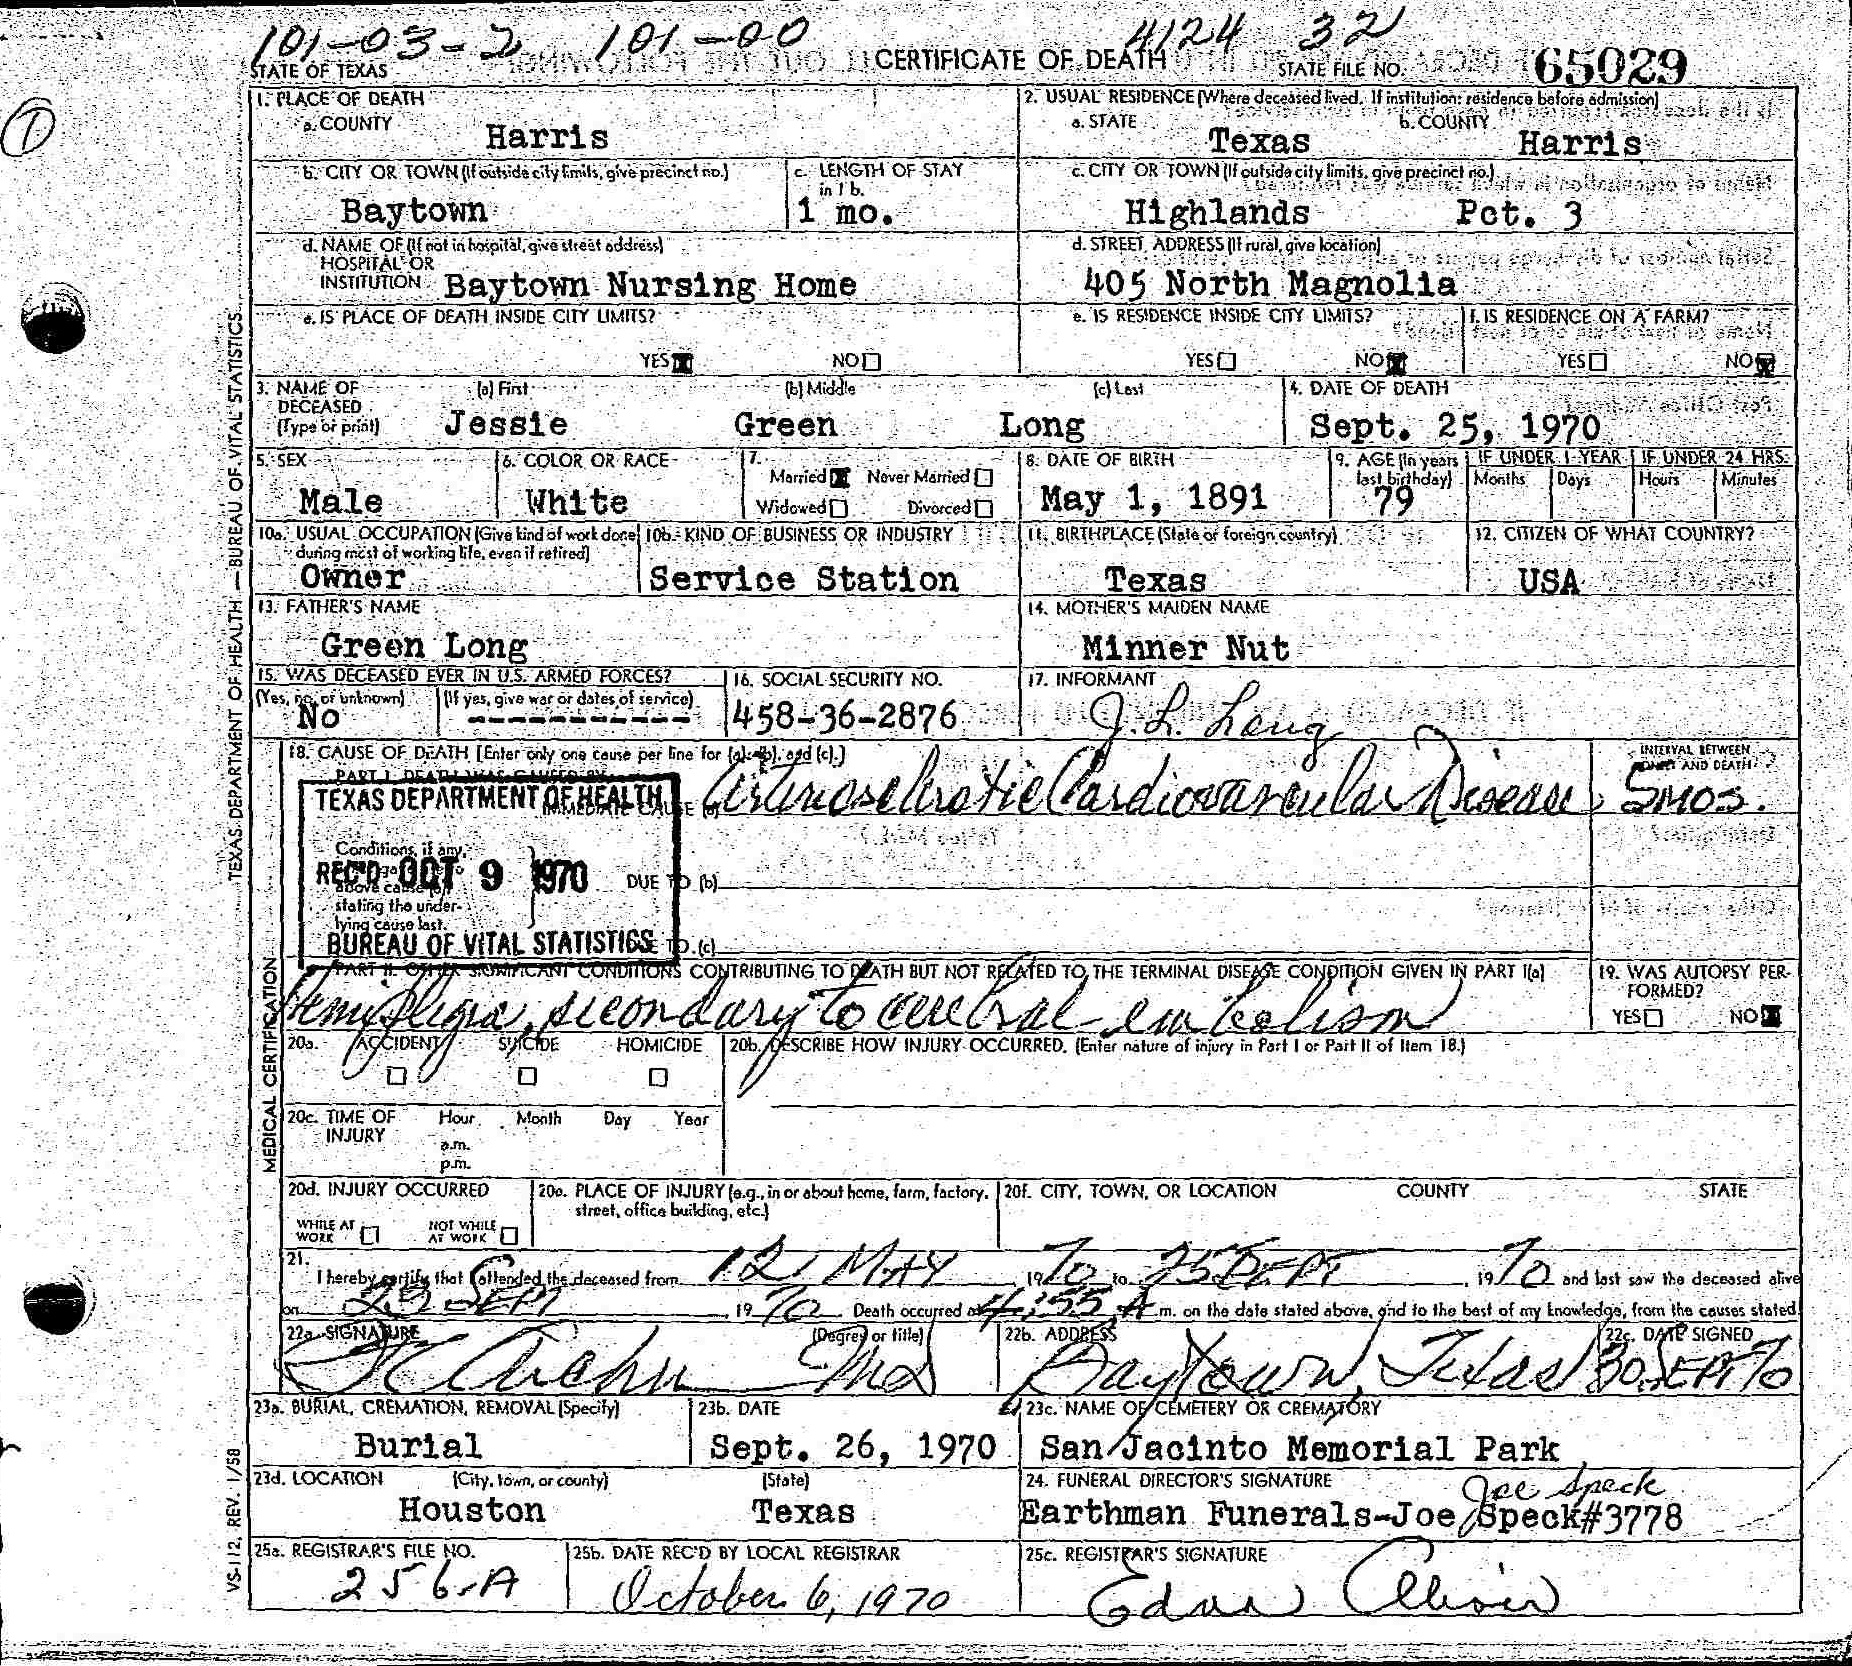 101-03-2 101-00 4124 32
STATE OF TEXAS CERTIFICATE OF DEATH STATE FILE NO. 65029
1
1. PLACE OF DEATH 2. USUAL RESIDENCE (Where deceased lived. If institution: residence before admission)
a. COUNTY Harris a. STATE Texas b. COUNTY Harris
b. CITY OR TOWN (If outside city limits, give precinct no.) c. LENGTH OF STAY in 1b. c. CITY OR TOWN (If outside city limits, give precinct no.)
Baytown 1 mo. Highlands Pct. 3
d. NAME OF (If not in hospital, give street address) d. STREET ADDRESS (If rural, give location)
HOSPITAL OR
INSTITUTION Baytown Nursing Home 405 North Magnolia
e. IS PLACE OF DEATH INSIDE CITY LIMITS? e. IS RESIDENCE INSIDE CITY LIMITS? f. IS RESIDENCE ON A FARM?
YES NO YES NO YES NO
3. NAME OF DECEASED (Type or print) (a) First (b) Middle (c) Last 4. DATE OF DEATH
Jessie Green Long Sept. 25, 1970
5. SEX 6. COLOR OR RACE 7. Married Never Married 8. DATE OF BIRTH 9. AGE (In years last birthday) IF UNDER 1 YEAR IF UNDER 24 HRS.
Months Days Hours Minutes
Male White Widowed Divorced May 1, 1891 79
10a. USUAL OCCUPATION (Give kind of work done during most of working life, even if retired) 10b. KIND OF BUSINESS OR INDUSTRY 11. BIRTHPLACE (State or foreign country) 12. CITIZEN OF WHAT COUNTRY?
Owner Service Station Texas USA
13. FATHER'S NAME 14. MOTHER'S MAIDEN NAME
Green Long Minner Nut
15. WAS DECEASED EVER IN U.S. ARMED FORCES? 16. SOCIAL SECURITY NO. 17. INFORMANT
(Yes, no, or unknown) (If yes, give war or dates of service)
No ----------- 458-36-2876 J. L. Long
18. CAUSE OF DEATH [Enter only one cause per line for (a), (b), and (c).] INTERVAL BETWEEN ONSET AND DEATH
PART I. DEATH WAS CAUSED BY
IMMEDIATE CAUSE (a) Arteriosclerotic Cardiovascular Disease 5 mos.
TEXAS DEPARTMENT OF HEALTH
REC'D OCT 9 1970
BUREAU OF VITAL STATISTICS
Conditions, if any,
above cause (a)
stating the under-
lying cause last.
DUE TO (b)
DUE TO (c)
PART II. OTHER SIGNIFICANT CONDITIONS CONTRIBUTING TO DEATH BUT NOT RELATED TO THE TERMINAL DISEASE CONDITION GIVEN IN PART I(a) 19. WAS AUTOPSY PERFORMED?
Hemiplegia, secondary to cerebral embolism YES NO
20a. ACCIDENT SUICIDE HOMICIDE 20b. DESCRIBE HOW INJURY OCCURRED. (Enter nature of injury in Part I or Part II of Item 18.)
20c. TIME OF INJURY Hour Month Day Year
a.m.
p.m.
20d. INJURY OCCURRED 20e. PLACE OF INJURY (e.g., in or about home, farm, factory, street, office building, etc.) 20f. CITY, TOWN, OR LOCATION COUNTY STATE
WHILE AT WORK NOT WHILE AT WORK
21.
I hereby certify that I attended the deceased from 12 MAY, 1970 to 25 SEPT, 1970 and last saw the deceased alive
on 23 SEPT, 1970. Death occurred at 4:55 A m. on the date stated above, and to the best of my knowledge, from the causes stated.
22a. SIGNATURE (Degree or title) 22b. ADDRESS 22c. DATE SIGNED
MD Baytown, Texas 30 SEPT 70
23a. BURIAL, CREMATION, REMOVAL (Specify) 23b. DATE 23c. NAME OF CEMETERY OR CREMATORY
Burial Sept. 26, 1970 San Jacinto Memorial Park
23d. LOCATION (City, town, or county) (State) 24. FUNERAL DIRECTOR'S SIGNATURE Joe Speck
Houston Texas Earthman Funerals-Joe Speck#3778
25a. REGISTRAR'S FILE NO. 25b. DATE REC'D BY LOCAL REGISTRAR 25c. REGISTRAR'S SIGNATURE
256-A October 6, 1970
TEXAS DEPARTMENT OF HEALTH — BUREAU OF VITAL STATISTICS
MEDICAL CERTIFICATION
VS-112, REV. 1/58